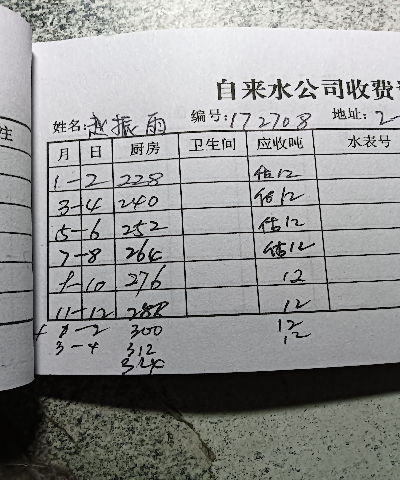 自来水公司收费
姓名: 赵振雨 编号: 172708 地址: 2-
月 日 厨房 卫生间 应收吨 水表号
1-2 228 估12
3-4 240 估12
5-6 252 估12
7-8 264 估12
9-10 276 12
11-12 288 12
1-2 300 12
3-4 312 12
324